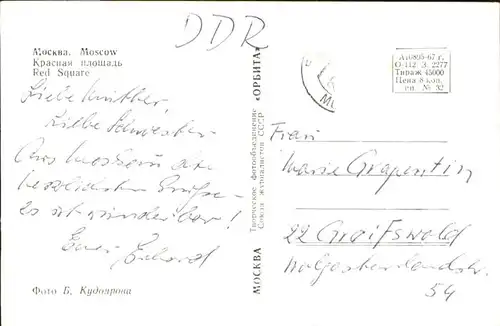 DDR
Москва. Moscow
Красная площадь
Red Square
Liebe Mutter,
Liebe Schwester
Aus Moskau die
herzlichsten Grüße
Es ist wunderbar!
Euer Erhard
Фото Б. Кудоярова
МОСКВА
«ОРБИТА»
Творческое фотообъединение
Союза журналистов СССР
А10895-67 г.
О-112 З. 2277
Тираж 45000
Цена 8 коп.
сп. № 32
Frau
Marie Grapentin
22 Greifswald
Wolgasterlandstr.
54